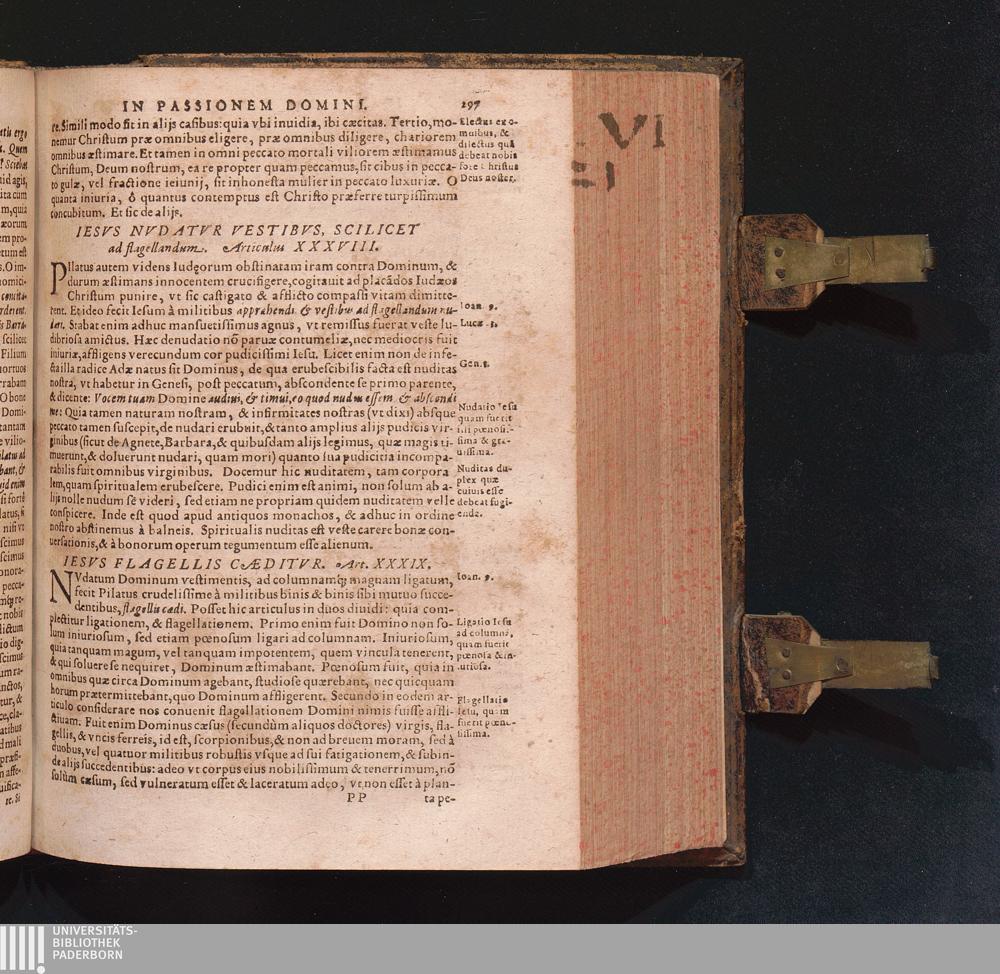 IN PASSIONEM DOMINI. 297
re. Simili modo fit in alijs casibus: quia vbi inuidia, ibi cæcitas. Tertio, mo-
nemur Christum præ omnibus eligere, præ omnibus diligere, chariorem
omnibus æstimare. Et tamen in omni peccato mortali viliorem æstimamus
Christum, Deum nostrum, ea re propter quam peccamus, sit cibus in pecca-
to gulæ, vel fractione ieiunij, sit inhonesta mulier in peccato luxuriæ. O
quanta iniuria, ô quantus contemptus est Christo præferre turpissimum
concubitum. Et sic de alijs.
Electus ex o-
mnibus, &
dilectus quā
debeat nobis
fore Christus
Deus noster.
IESVS NVDATVR VESTIBVS, SCILICET
ad flagellandum. Articulus XXXVIII.
PIlatus autem videns Iudęorum obstinatam iram contra Dominum, &
durum æstimans innocentem crucifigere, cogitauit ad placādos Iudæos
Christum punire, vt sic castigato & afflicto compassi vitam dimitte-
rent. Et ideo fecit Iesum à militibus apprehendi, & vestibus ad flagellandum nu-
dari. Stabat enim adhuc mansuetissimus agnus, vt remissus fuerat veste lu-
dibriosa amictus. Hæc denudatio nō paruæ contumeliæ, nec mediocris fuit
iniuriæ, affligens verecundum cor pudicissimi Iesu. Licet enim non de infe-
cta illa radice Adæ natus sit Dominus, de qua erubescibilis facta est nuditas
nostra, vt habetur in Genesi, post peccatum, abscondente se primo parente,
& dicente: Vocem tuam Domine audiui, & timui, eo quod nudus essem & abscondi
me: Quia tamen naturam nostram, & infirmitates nostras (vt dixi) absque
peccato tamen suscepit, de nudari erubuit, & tanto amplius alijs pudicis vir-
ginibus (sicut de Agnete, Barbara, & quibusdam alijs legimus, quæ magis ti-
muerunt, & doluerunt nudari, quam mori) quanto sua pudicitia incompa-
rabilis fuit omnibus virginibus. Docemur hic nuditatem, tam corpora
lem, quam spiritualem erubescere. Pudici enim est animi, non solum ab a-
lijs nolle nudum se videri, sed etiam ne propriam quidem nuditatem velle
conspicere. Inde est quod apud antiquos monachos, & adhuc in ordine
nostro abstinemus à balneis. Spiritualis nuditas est veste carere bonæ con-
uersationis, & à bonorum operum tegumentum esse alienum.
Ioan. 9.
Lucæ
Gen.
Nudatio Iesu
quam fuerit
illi pœnosis-
sima & gra-
uissima.
Nuditas du-
plex quæ
cuiuis esse
debeat fugi-
enda.
IESVS FLAGELLIS CÆDITVR. Art. XXXIX.
NVdatum Dominum vestimentis, ad columnamq́; magnam ligatum,
fecit Pilatus crudelissime à militibus binis & binis sibi mutuo succe-
dentibus, flagellis cædi. Posset hic articulus in duos diuidi: quia com-
plectitur ligationem, & flagellationem. Primo enim fuit Domino non so-
lum iniuriosum, sed etiam pœnosum ligari ad columnam. Iniuriosum,
quia tanquam magum, vel tanquam impotentem, quem vincula tenerent,
& qui soluere se nequiret, Dominum æstimabant. Pœnosum fuit, quia in
omnibus quæ circa Dominum agebant, studiose quærebant, nec quicquam
horum prætermittebant, quo Dominum affligerent. Secundo in eodem ar-
ticulo considerare nos conuenit flagellationem Domini nimis fuisse affli-
ctiuam. Fuit enim Dominus cæsus (secundùm aliquos doctores) virgis, fla-
gellis, & vncis ferreis, id est, scorpionibus, & non ad breuem moram, sed à
duobus, vel quatuor militibus robustis vsque ad sui fatigationem, & subin-
de alijs succedentibus: adeo vt corpus eius nobilissimum & tenerrimum, nō
solùm cæsum, sed vulneratum esset & laceratum adeo, vt non esset à plan-
PP ta pe-
Ioan. 9.
Ligatio Iesu
ad columnā,
quam fuerit
pœnosa & in-
iuriosa.
Flagellatio
Iesu, quam
fuerit pœno-
sissima.
VI
UNIVERSITÄTS-
BIBLIOTHEK
PADERBORN